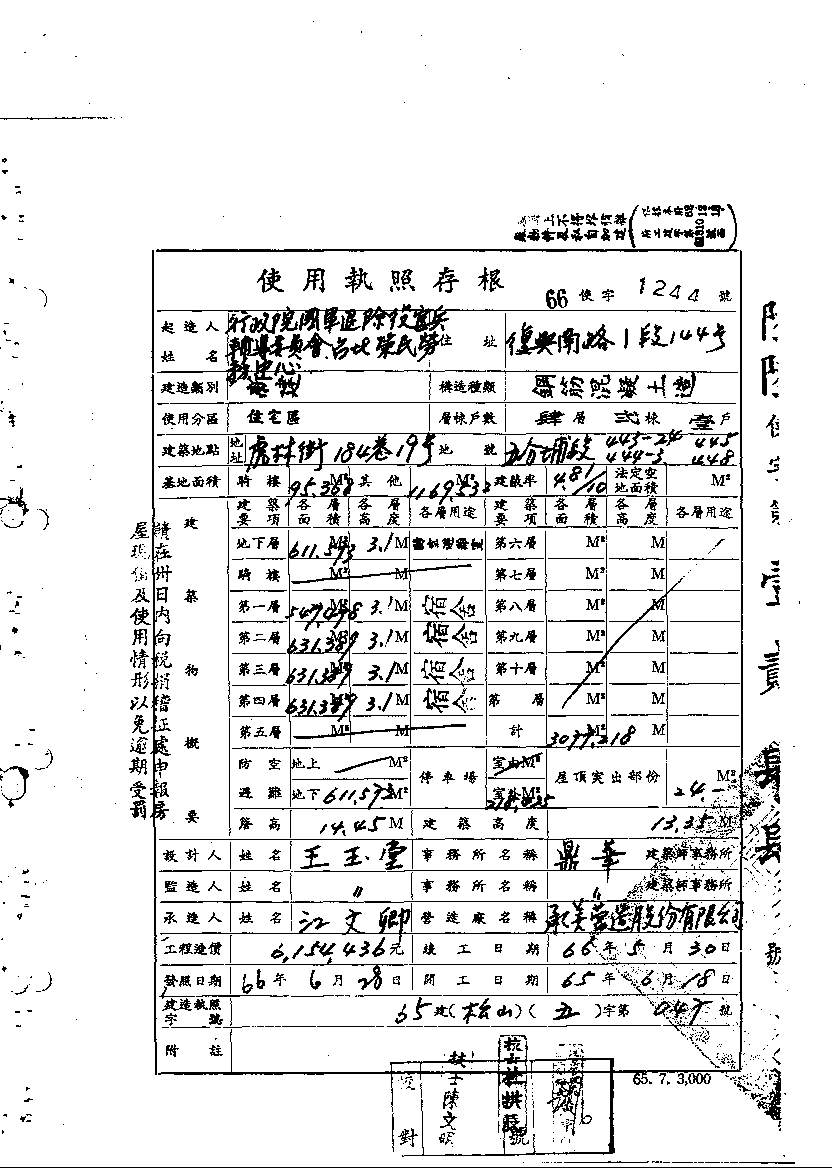 使用執照存根
66 使字 1244 號
起造人姓名 行政院國軍退除役官兵輔導委員會台北榮民勞 住址 復興南路1段144号
建造類別 構造種類 鋼筋混凝土造
使用分區 住宅區 層棟戶數 肆層 弍棟 壹戶
建築地點 地址 虎林街184巷19号 地號 五分埔段 443-24 445 444-3 448
基地面積 騎樓 95.368 M² 其他 M² 建蔽率 4.81/10 法定空地面積 M²
建築物概要
建築要項 各層面積 各層高度 各層用途 建築要項 各層面積 各層高度 各層用途
地下層 611.573 M² 3.1 M 第六層 M² M
騎樓 M² M 第七層 M² M
第一層 M² 3.1 M 宿舍 第八層 M² M
第二層 631.389 M² 3.1 M 宿舍 第九層 M² M
第三層 631.389 M² 3.1 M 宿舍 第十層 M² M
第四層 631.389 M² 3.1 M 宿舍 第 層 M² M
第五層 M² M 計 3077.218 M² M
防空避難 地上 M² 停車場 室內 M² 屋頂突出部份 24.- M²
地下 611.573 M² 室外 M²
簷高 14.45 M 建築高度 13.35 M
設計人 姓名 王玉堂 事務所名稱 鼎華 建築師事務所
監造人 姓名 〃 事務所名稱 〃 建築師事務所
承造人 姓名 江文卿 營造廠名稱 承美營造股份有限公司
工程造價 6,154,436元 竣工日期 66年5月30日
發照日期 66年6月28日 開工日期 65年6月18日
建造執照字號 65建(松山)(五)字第047號
附註
65. 7. 3,000
請在卅日內向稅捐稽征處申報房
屋現值及使用情形以免逾期受罰
校對
技士陳文明
號